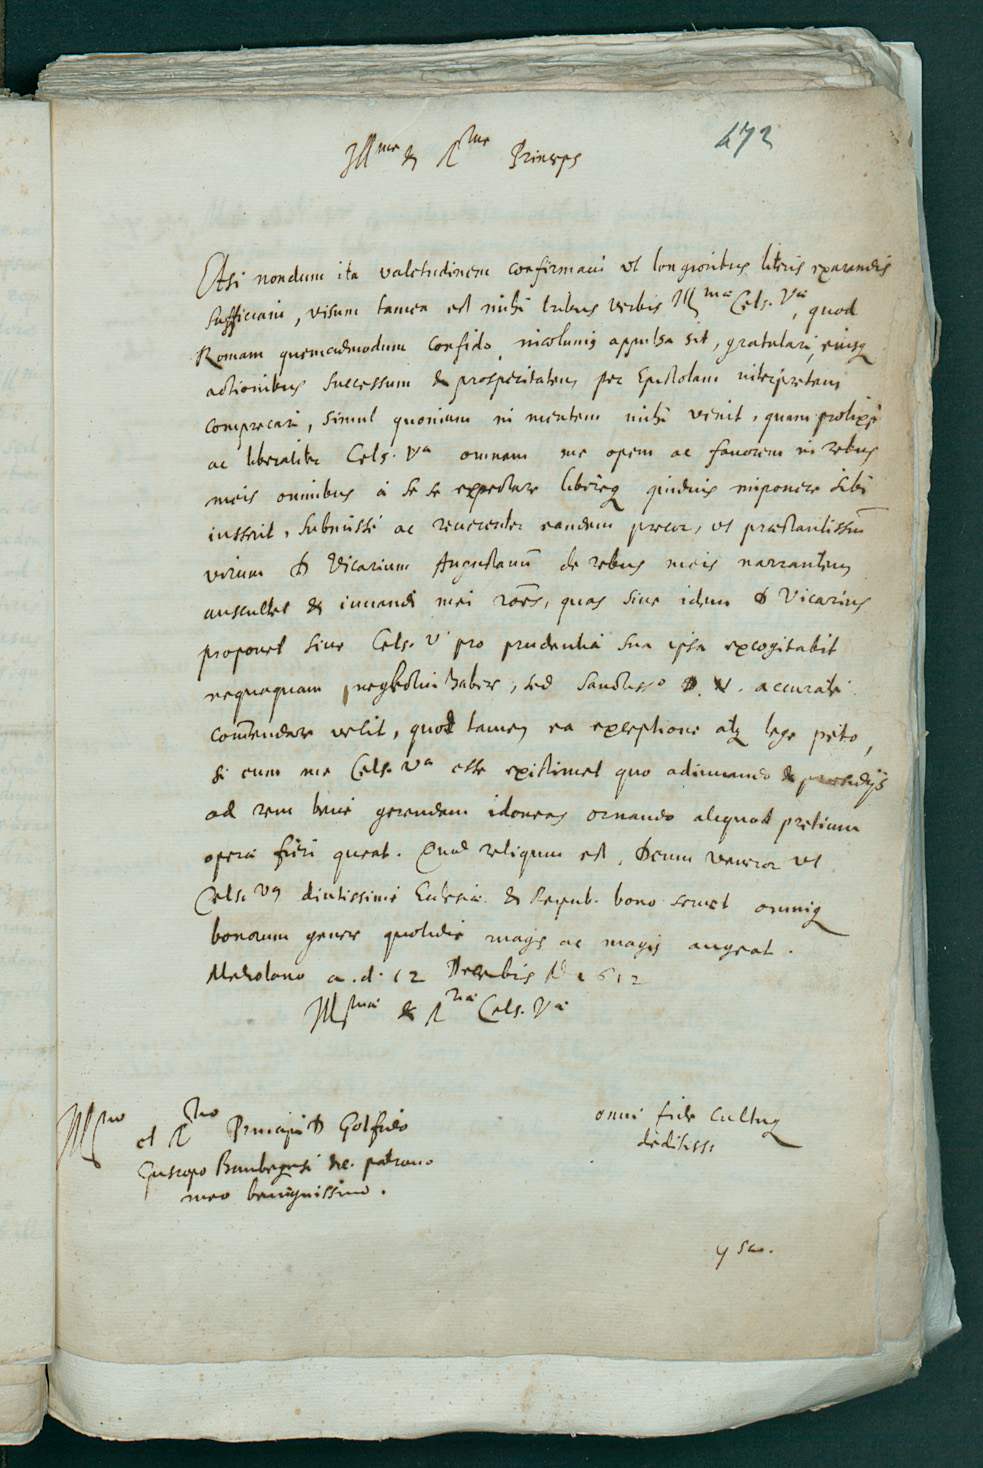 472
Ill^me & R^me Princeps
Etsi nondum ita valetudinem confirmaui vt longioribus literis exarandis
sufficiam, visum tamen est mihi tribus verbis Ill^mae Cels. V^ae, quod
Romam quemadmodum confido incolumis appulsa sit, gratulari, eiusq
actionibus successum & prosperitatem per Epistolam interpretem
comprecari, simul quoniam in mentem mihi venit, quam prolixè
ac liberaliter Cels. V^a omnem me opem ac fauorem in rebus
meis omnibus à se se expectare liberéq quiduis imponere sibi
iusserit, submissè ac reuerenter eandem precor, vt præstantissim̄
virum D Vicarium Augustanū de rebus meis narrantem
auscultet & iuuandi mei rōes, quas siue idem D Vicarius
proponet siue Cels. V pro prudentia sua ipsa excogitabit
nequaquam neglectui habere, sed Sanctiss° D. N. accuratè
com̄endare velit, quod tamen ea exceptione atq lege peto,
si eum me Cels. V^a esse existimet quo adiuuando & præsidijs
ad rem benè gerendam idoneis ornando aliquod pretium
operæ fieri queat. Quod reliquum est, Deum veneror vt
Cels. V^am diutissimè Eclesiæ & Reipub. bono seruet omniq
bonorum genere quotidie magis ac magis augeat.
Mediolano a. d. 12 Decembis 1612
Ill^mae & R^mae Cels. V^ae
Ill^mo
et R^mo Principi D Gotfrido
Episcopo Bambergensi &c. patrono
meo benignissimo.
omni fide cultuq
deditiss.